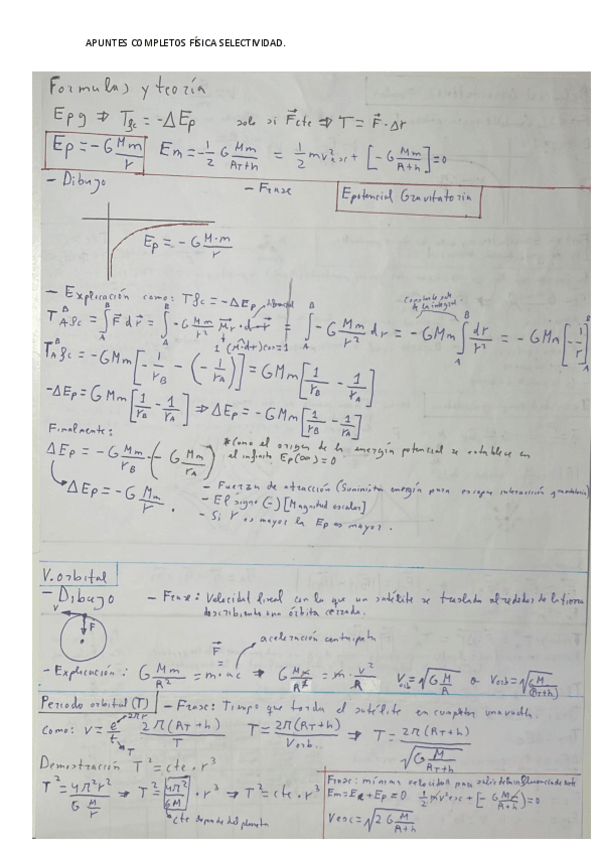 APUNTES COMPLETOS FÍSICA SELECTIVIDAD.
Formulas y teoría
Epg ⇒ Tgc = -ΔEp solo si F⃗cte ⇒ T = F⃗·Δr
Ep = -G Mm/r Em = -1/2 G Mm/(RT+h) = 1/2 mv²esc + [-G Mm/(RT+h)] = 0
- Dibujo - Frase Epotencial Gravitatoria
Ep = -G M·m/r
- Explicación como: Tgc = -ΔEp
T A→B gc = ∫ F⃗ dr⃗ = ∫ -G Mm/r² · dr⃗ = ∫ -G Mm/r² dr = -GMm ∫ dr/r² = -GMm [-1/r]
T A→B gc = -GMm [-1/rB - (-1/rA)] = GMm [1/rB - 1/rA]
-ΔEp = GMm [1/rB - 1/rA] ⇒ ΔEp = -GMm [1/rB - 1/rA]
Finalmente:
ΔEp = -G Mm/rB - (-G Mm/rA) *Como el origen de la energía potencial se establece en
el infinito Ep(∞) = 0
ΔEp = -G Mm/r.
- Fuerzas de atracción (Suministra energía para escapar interacción gravitatoria)
- Ep signo (-) [Magnitud escalar]
- Si r es mayor la Ep es mayor.
V. orbital
- Dibujo - Frase: Velocidad lineal con la que un satélite se traslada alrededor de la tierra
describiendo una órbita cerrada.
V F
F⃗ aceleración centrípeta
- Explicación: G Mm/R² = m·ac ⇒ G Mm/R² = m·v²/R Vorb = √(G M/R) o Vorb = √(G M/(RT+h))
Periodo orbital (T) - Frase: Tiempo que tarda el satélite en completar una vuelta.
como: v = e/t 2πr T 2π(RT+h)/T T = 2π(RT+h)/Vorb. ⇒ T = 2π(RT+h)/√(G M/(RT+h))
Demostración T² = cte · r³
T² = 4π²r²/(G M/r) ⇒ T² = 4π²/GM · r³ ⇒ T² = cte · r³
cte depende del planeta
Frase: mínima velocidad para salir de la influencia
Em = Ec + Ep = 0 1/2 mv²esc + [-G Mm/(R+h)] = 0
Vesc = √(2G M/(R+h))